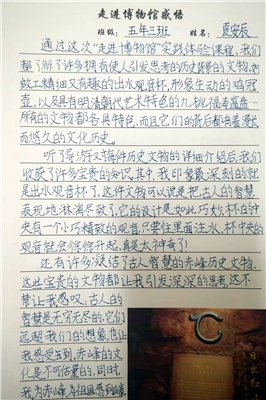 走进博物馆感悟
班级：五年三班 姓名：夏安辰
通过这次“走进博物馆”实践体验课程，我们
了解了许多拥有使人引发思考的历史背景的文物，如
做工精细又有趣的出水观音杯，形象生动的鸡冠
壶，以及具有明清朝代艺术特色的九桃福寿盘……
所有的文物都各具特色，而且它们的背后都有着漫长
而悠久的文化历史。
听了导游对每件历史文物的详细介绍后，我们
收获了许多宝贵的知识。其中，我印象最深刻的就
是出水观音杯了，这件文物可以说是把古人的智慧
表现地淋漓尽致了，它的设计是如此巧妙，杯的中
央有一个小巧精致的观音，只要往里面注水，杯中央的
观音就会徐徐升起，真是太神奇了！
还有许多凝结了古人智慧的赤峰历史文物，
这些宝贵的文物都让我引发深深的思考，这不
禁让我感叹，古人的
智慧是无穷无尽的，它们
远超我们的想象，也让
我感受到，赤峰的文
化是不可估量的，同时，
我为赤峰，为祖国感到
日出红山